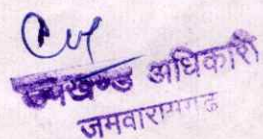 उपखण्ड अधिकारी
जमवारामगढ